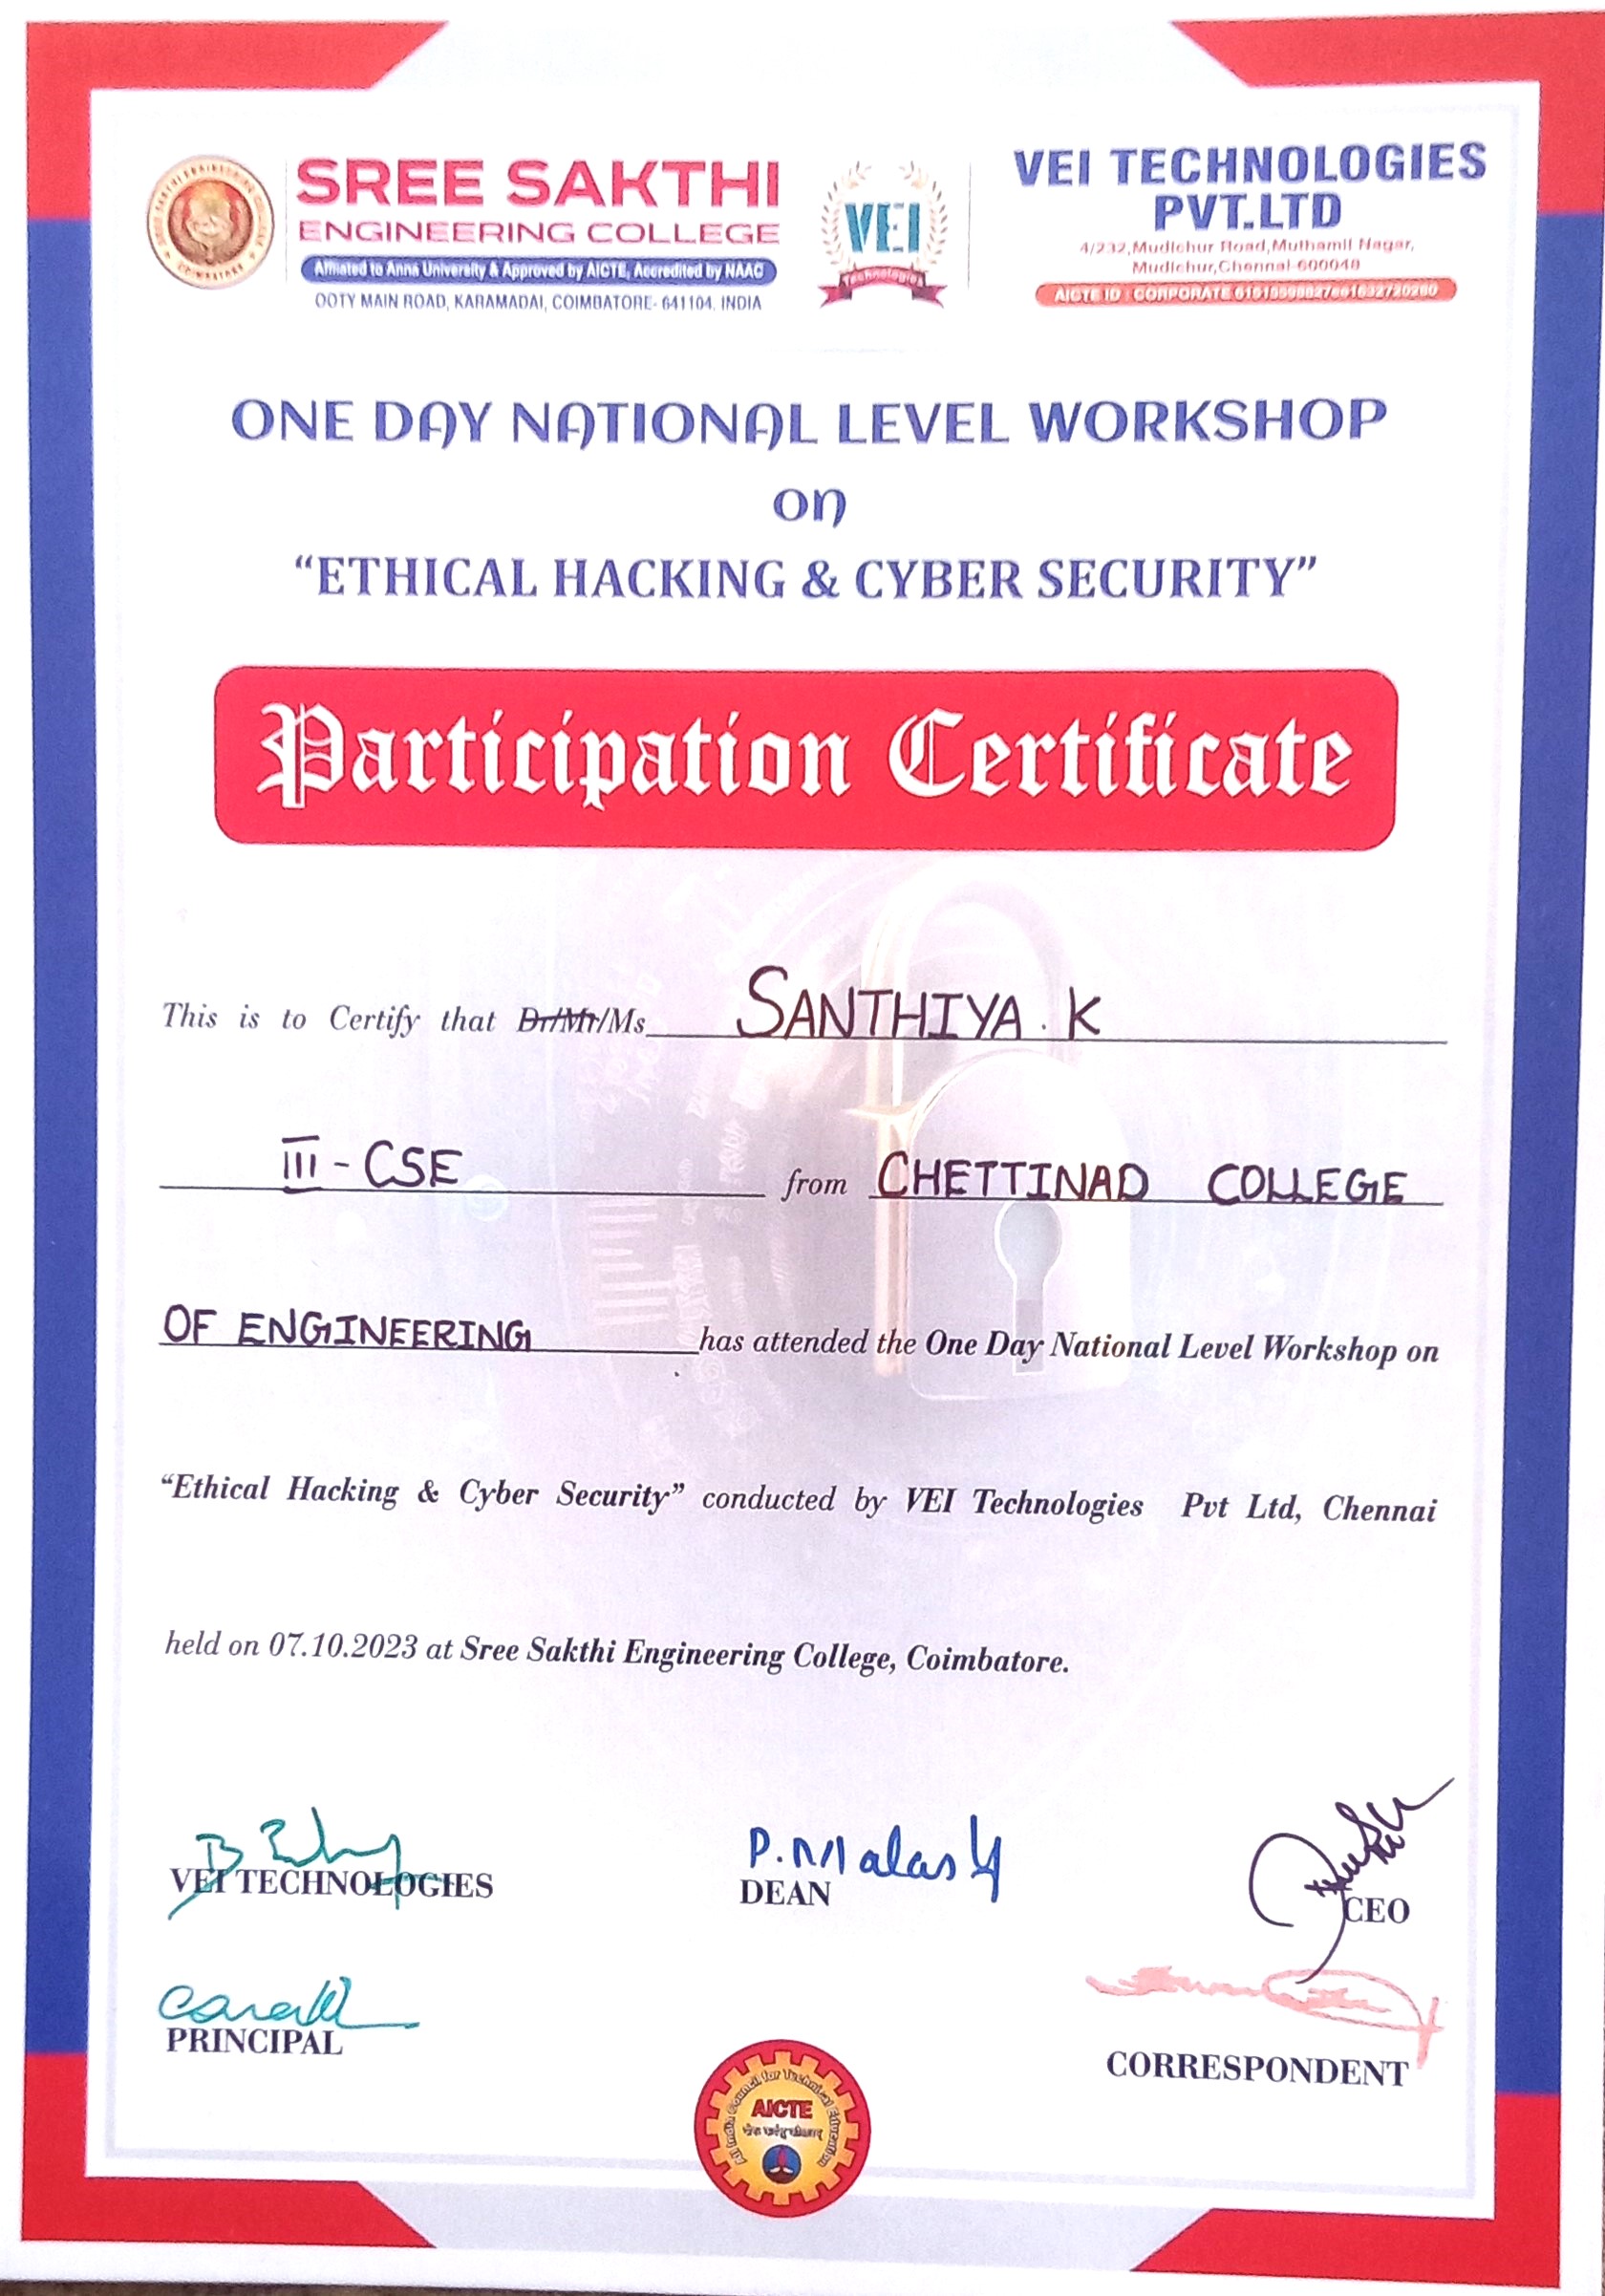 SREE SAKTHI
ENGINEERING COLLEGE
Affiliated to Anna University & Approved by AICTE, Accredited by NAAC
OOTY MAIN ROAD, KARAMADAI, COIMBATORE- 641104. INDIA
VEI
Technologies
VEI TECHNOLOGIES
PVT.LTD
4/232,Mudichur Road,Muthamil Nagar,
Mudichur,Chennai-600048
AICTE ID : CORPORATE
ONE DAY NATIONAL LEVEL WORKSHOP
on
“ETHICAL HACKING & CYBER SECURITY”
Participation Certificate
This is to Certify that Dr/Mr/Ms SANTHIYA. K
III - CSE from CHETTINAD COLLEGE
OF ENGINEERING has attended the One Day National Level Workshop on
“Ethical Hacking & Cyber Security” conducted by VEI Technologies Pvt Ltd, Chennai
held on 07.10.2023 at Sree Sakthi Engineering College, Coimbatore.
VEI TECHNOLOGIES
DEAN
CEO
PRINCIPAL
CORRESPONDENT
All India Council for Technical Education
AICTE